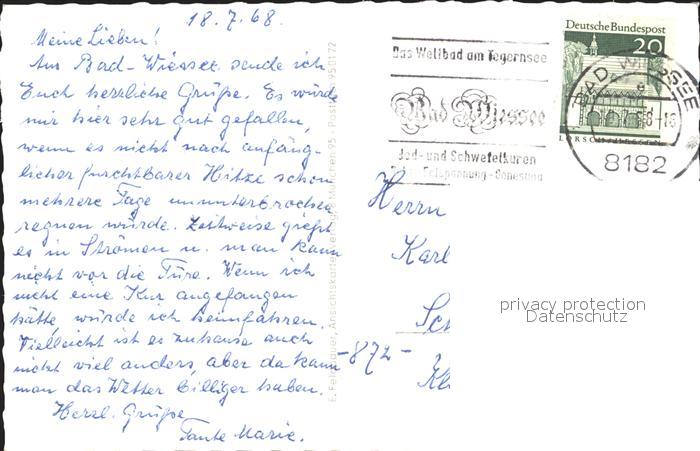 18.7.68.
Meine Lieben!
Aus Bad-Wiessee sende ich
Euch herzliche Grüße. Es würde
mir hier sehr gut gefallen,
wenn es nicht nach anfäng-
licher furchtbarer Hitze schon
mehrere Tage ununterbrochen
regnen würde. Zeitweise gießt
es in Strömen u. man kann
nicht vor die Türe. Wenn ich
nicht eine Kur angefangen
hätte, würde ich heimfahren.
Vielleicht ist es zuhause auch
nicht viel anders, aber da kann
man das Wetter billiger haben.
Herzl. Grüße
Tante Marie.
München 95
Das Weltbad am Tegernsee
Bad Wiessee
Jod- und Schwefelkuren
Entspannung - Genesung
Deutsche Bundespost
20
LORSCH/HESSEN
BAD WIESSEE
8182
Herrn
Karl
Sch
Kl
-872-
privacy protection
Datenschutz